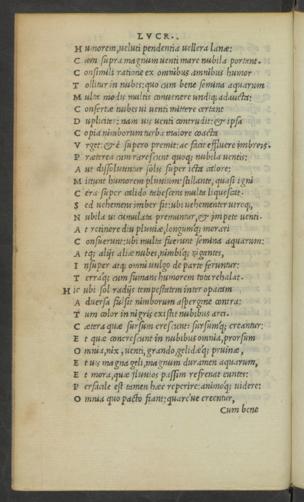 LVCR.
H umorem, ueluti pendentia uellera lanæ:
C um supra magnum uenti mare nubila portant.
C onsimili ratione ex omnibus amnibus humor
T ollitur in nubes: quo cum bene semina aquarum
M ulta modis multis conuenere undiq; adaucta:
C onfertæ nubes ui uenti mittere certant
D upliciter: nam uis uenti contrudit: & ipsa
C opia nimborum turba maiore coacta
V rget: & è supero premit: ac facit effluere imbreis.
P ræterea cum rarescunt quoq; nubila uentis:
A ut dissoluuntur solis super icta calore:
M ittunt humorem pluuium: stillantq; quasi igni
C era super calido tabescens multa liquescat.
S ed uehemens imber fit: ubi uehementer utroq;
N ubila ui cumulata premuntur, & impete uenti.
A t retinere diu pluuiæ, longumq; morari
C onsuerunt: ubi multa fuerunt semina aquarum:
A tq; alijs aliæ nubes, nimbiq; rigantes,
I nsuper atq; omni uulgo de parte feruntur:
T erraq; cum fumans humorem tota rehalat.
H ic ubi sol radijs tempestatem inter opacam
A duersa fulsit nimborum aspergine contra:
T um color in nigris existit nubibus arci.
C ætera quæ sursum crescunt: sursumq; creantur:
E t quæ concrescunt in nubibus omnia, prorsum
O mnia, nix, uenti, grando, gelidæq; pruinæ,
E t uis magna geli, magnum duramen aquarum,
E t mora, quæ fluuios passim refrenat euntes:
P erfacile est tamen hæc reperire: animoq; uidere:
O mnia quo pacto fiant: quarĉue creentur,
Cum bene